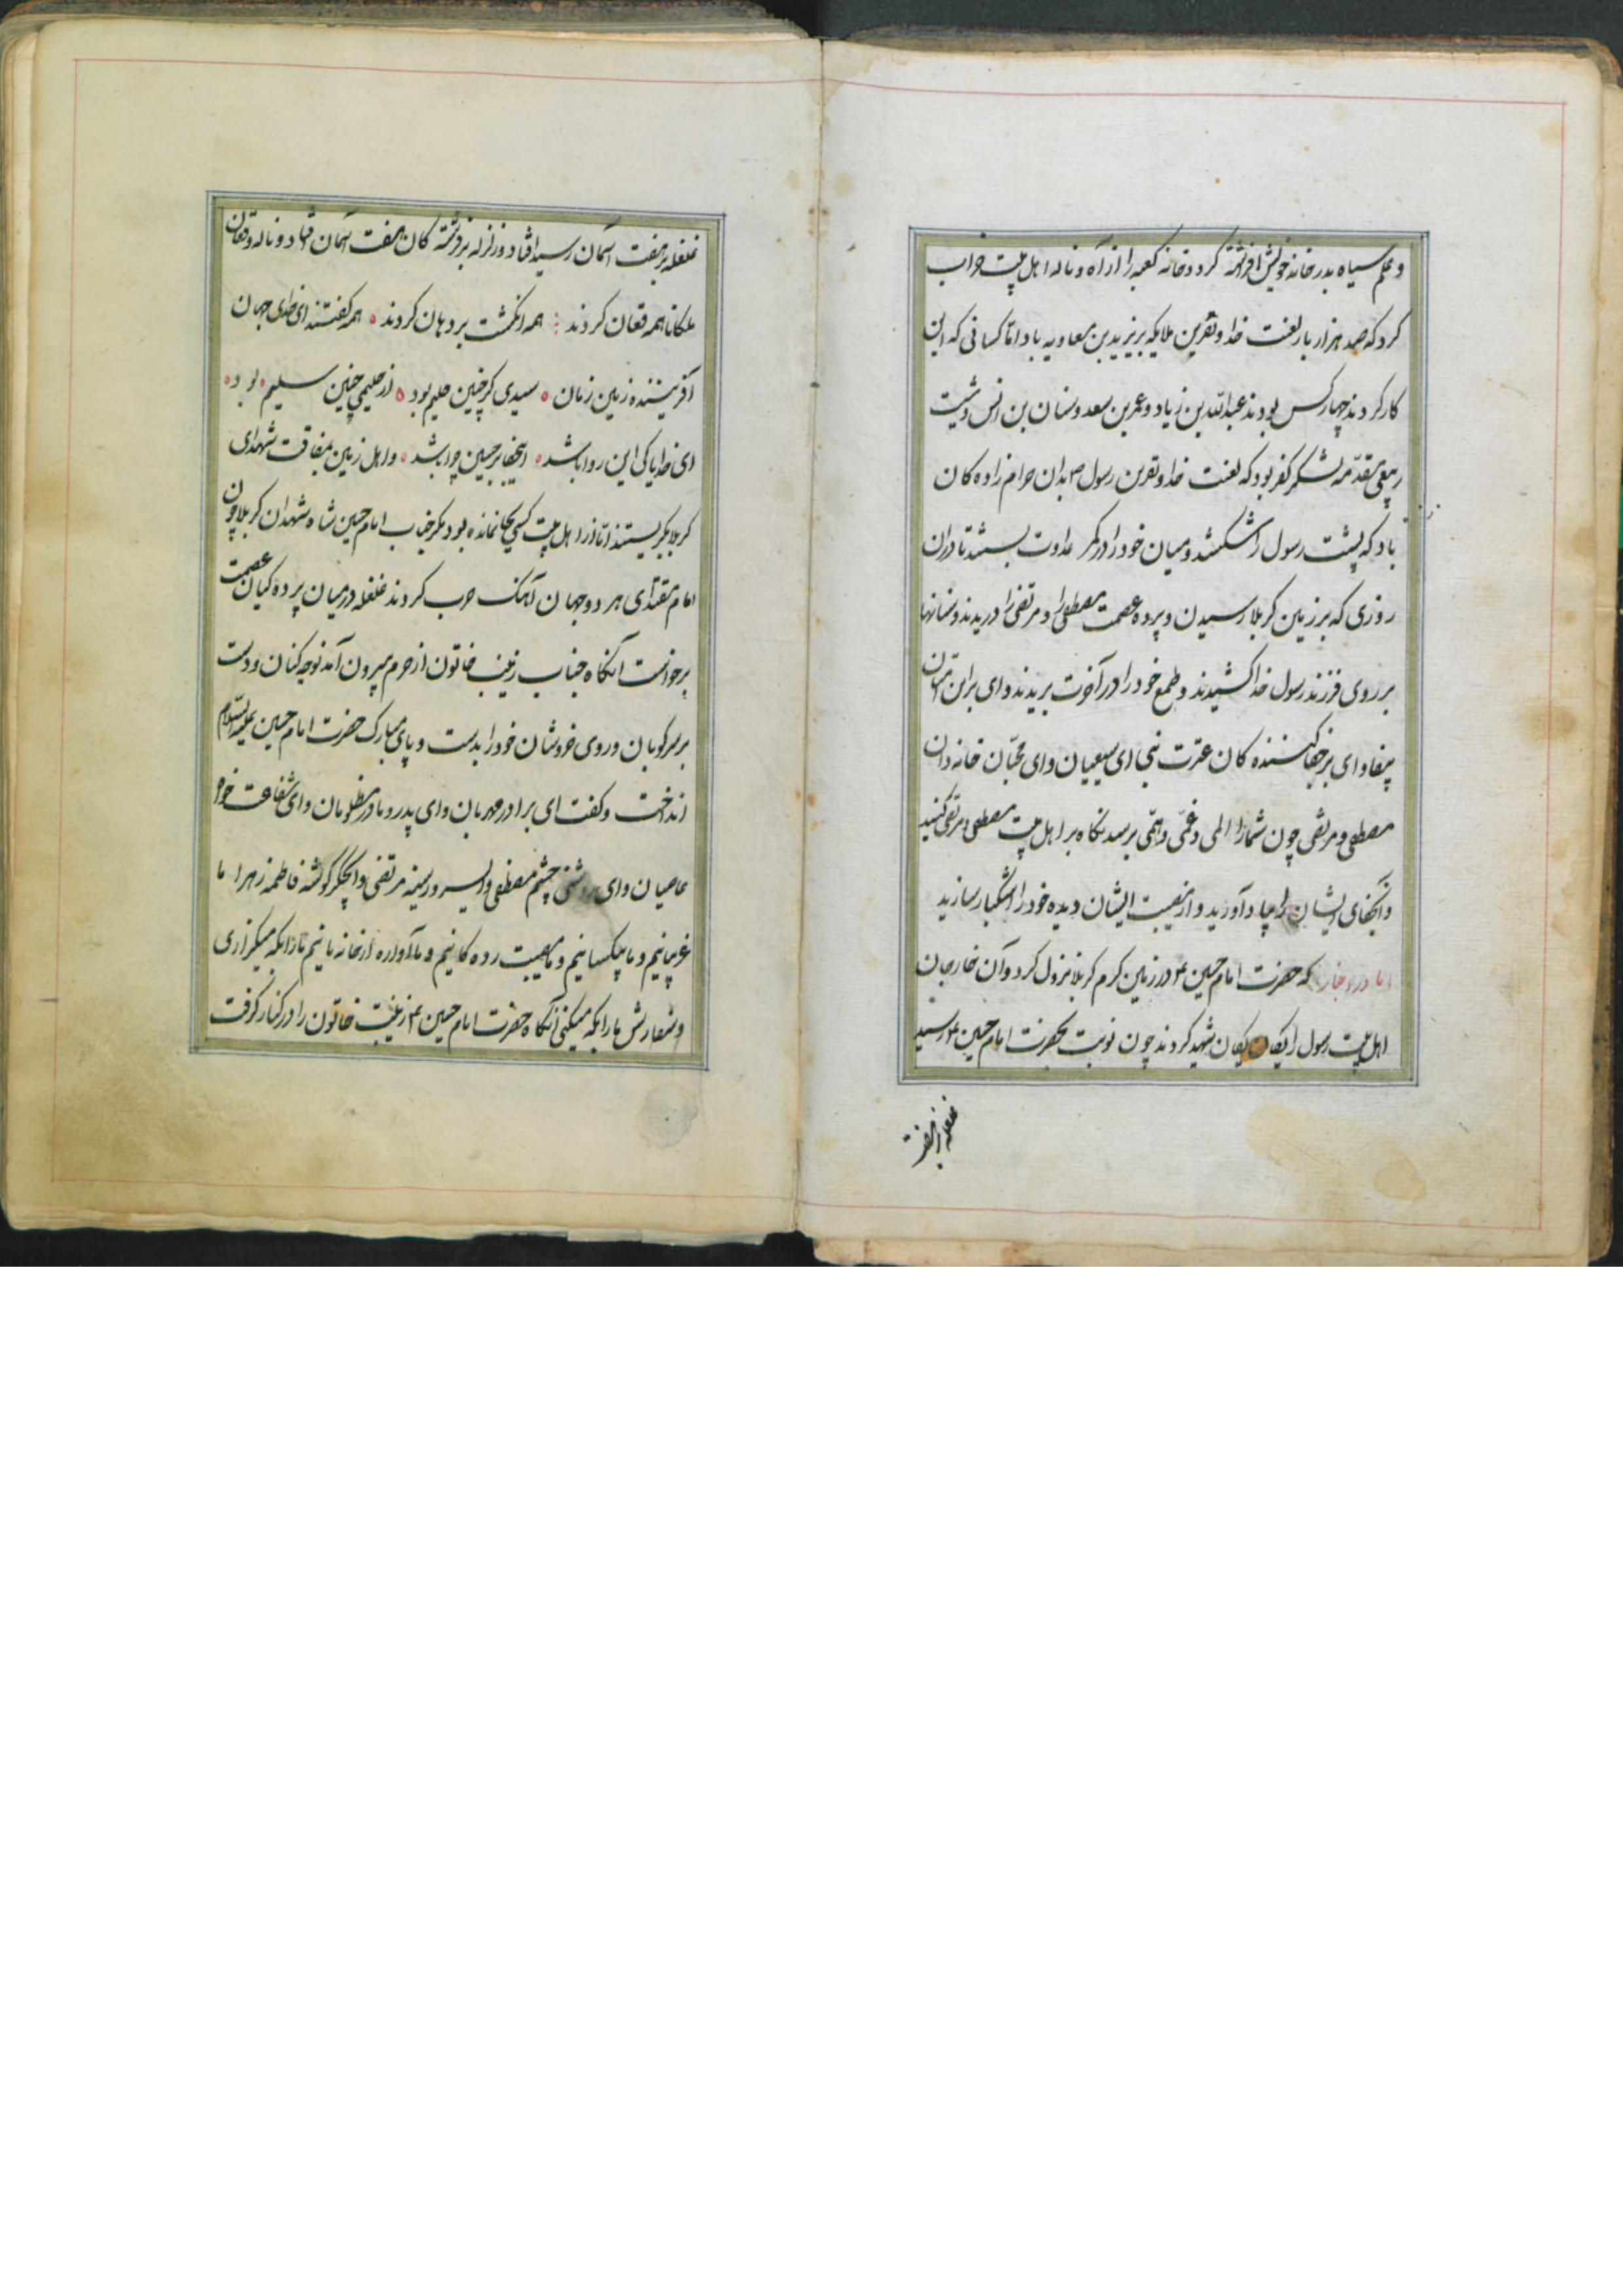 و علم سیاه بدر خانه خویش افراشته کرد و خانه کعبه را از آه و ناله اهل بیت خراب
کرد که صد هزار بار لعنت خدا و نفرین ملایکه بر یزید بن معاویه باد اما کسانی که این
کار کردند چهار کس بودند عبدالله بن زیاد و عمر بن سعد و سنان بن انس و شیث
ربیعی مقدمه لشکر کفر بود که لعنت خدا و نفرین رسول ص بدان حرام زاده کان
باد که پشت رسول را شکستند و میان خود را در کمر عداوت بستند تا در ان
روزی که بر زمین کربلا رسیدن و پرده عصمت مصطفی را و مرتضی را دریدند و سنانها
بر روی فرزند رسول خدا کشیدند و طمع خود را در آخرت بریدند وای بر این امتان
بیفا وای بر جفا کننده کان عترت نبی ای شیعیان وای محبان خانه دان
مصطفی و مرتضی چون شما را المی و غمی و المی برسد نگاه بر اهل بیت مصطفی و مرتضی کنید
و آنجفای ایشان را بیاد آورید و از مصیبت ایشان دیده خود را اشکبار سازید
اما در اخبار که حضرت امام حسین ع در زمین کرم کربلا نزول کرد و آن خارجان
اهل بیت رسول را یکان یکان شهید کردند چون نوبت بحضرت امام حسین ع رسید
غلغله بر هفت
غلغله بر هفت آسمان رسید افتاد و زلزله بر فرشته کان هفت آسمان افتاد و ناله و فغان
ملکانا همه فغان کردند همه انکشت بر دهان کردند همه کفتند ای خدای جهان
آفریننده زمین زمان سیدی کر چنین حلیم بود از حلیمی چنین سلیم بود
ای خدایا کی این روا باشد اینجفا بر حسین چرا باشد و اهل زمین بمفاقت شهدای
کربلا بکریستند تا از اهل بیت کسی بجا نمانده بود مکر جناب امام حسین شاه شهدان کربلا چون
امام مقتدای هر دو جهان آهنک حرب کردند غلغله در میان پرده کیان عصمت
برخواست آنکاه جناب زینب خاتون از حرم بیرون آمد نوحه کنان و دست
بر سر کوبان و روی خروشان خود را بدست و پای مبارک حضرت امام حسین علیه السلام
انداخت و کفت ای برادر مهربان وای پدر و مادر مظلومان وای شفاعت خواه
عاصیان وای روشنی چشم مصطفی و ای سرور سینه مرتضی و ایجکر کوشه فاطمه زهرا ما
غریبانیم و ما بیکسانیم و ما مصیبت زده کانیم و ما آواره از خانه مانیم ما را بکه میکزاری
و سفارش ما را بکه میکنی آنکاه حضرت امام حسین ع زینب خاتون را در کنار کرفت